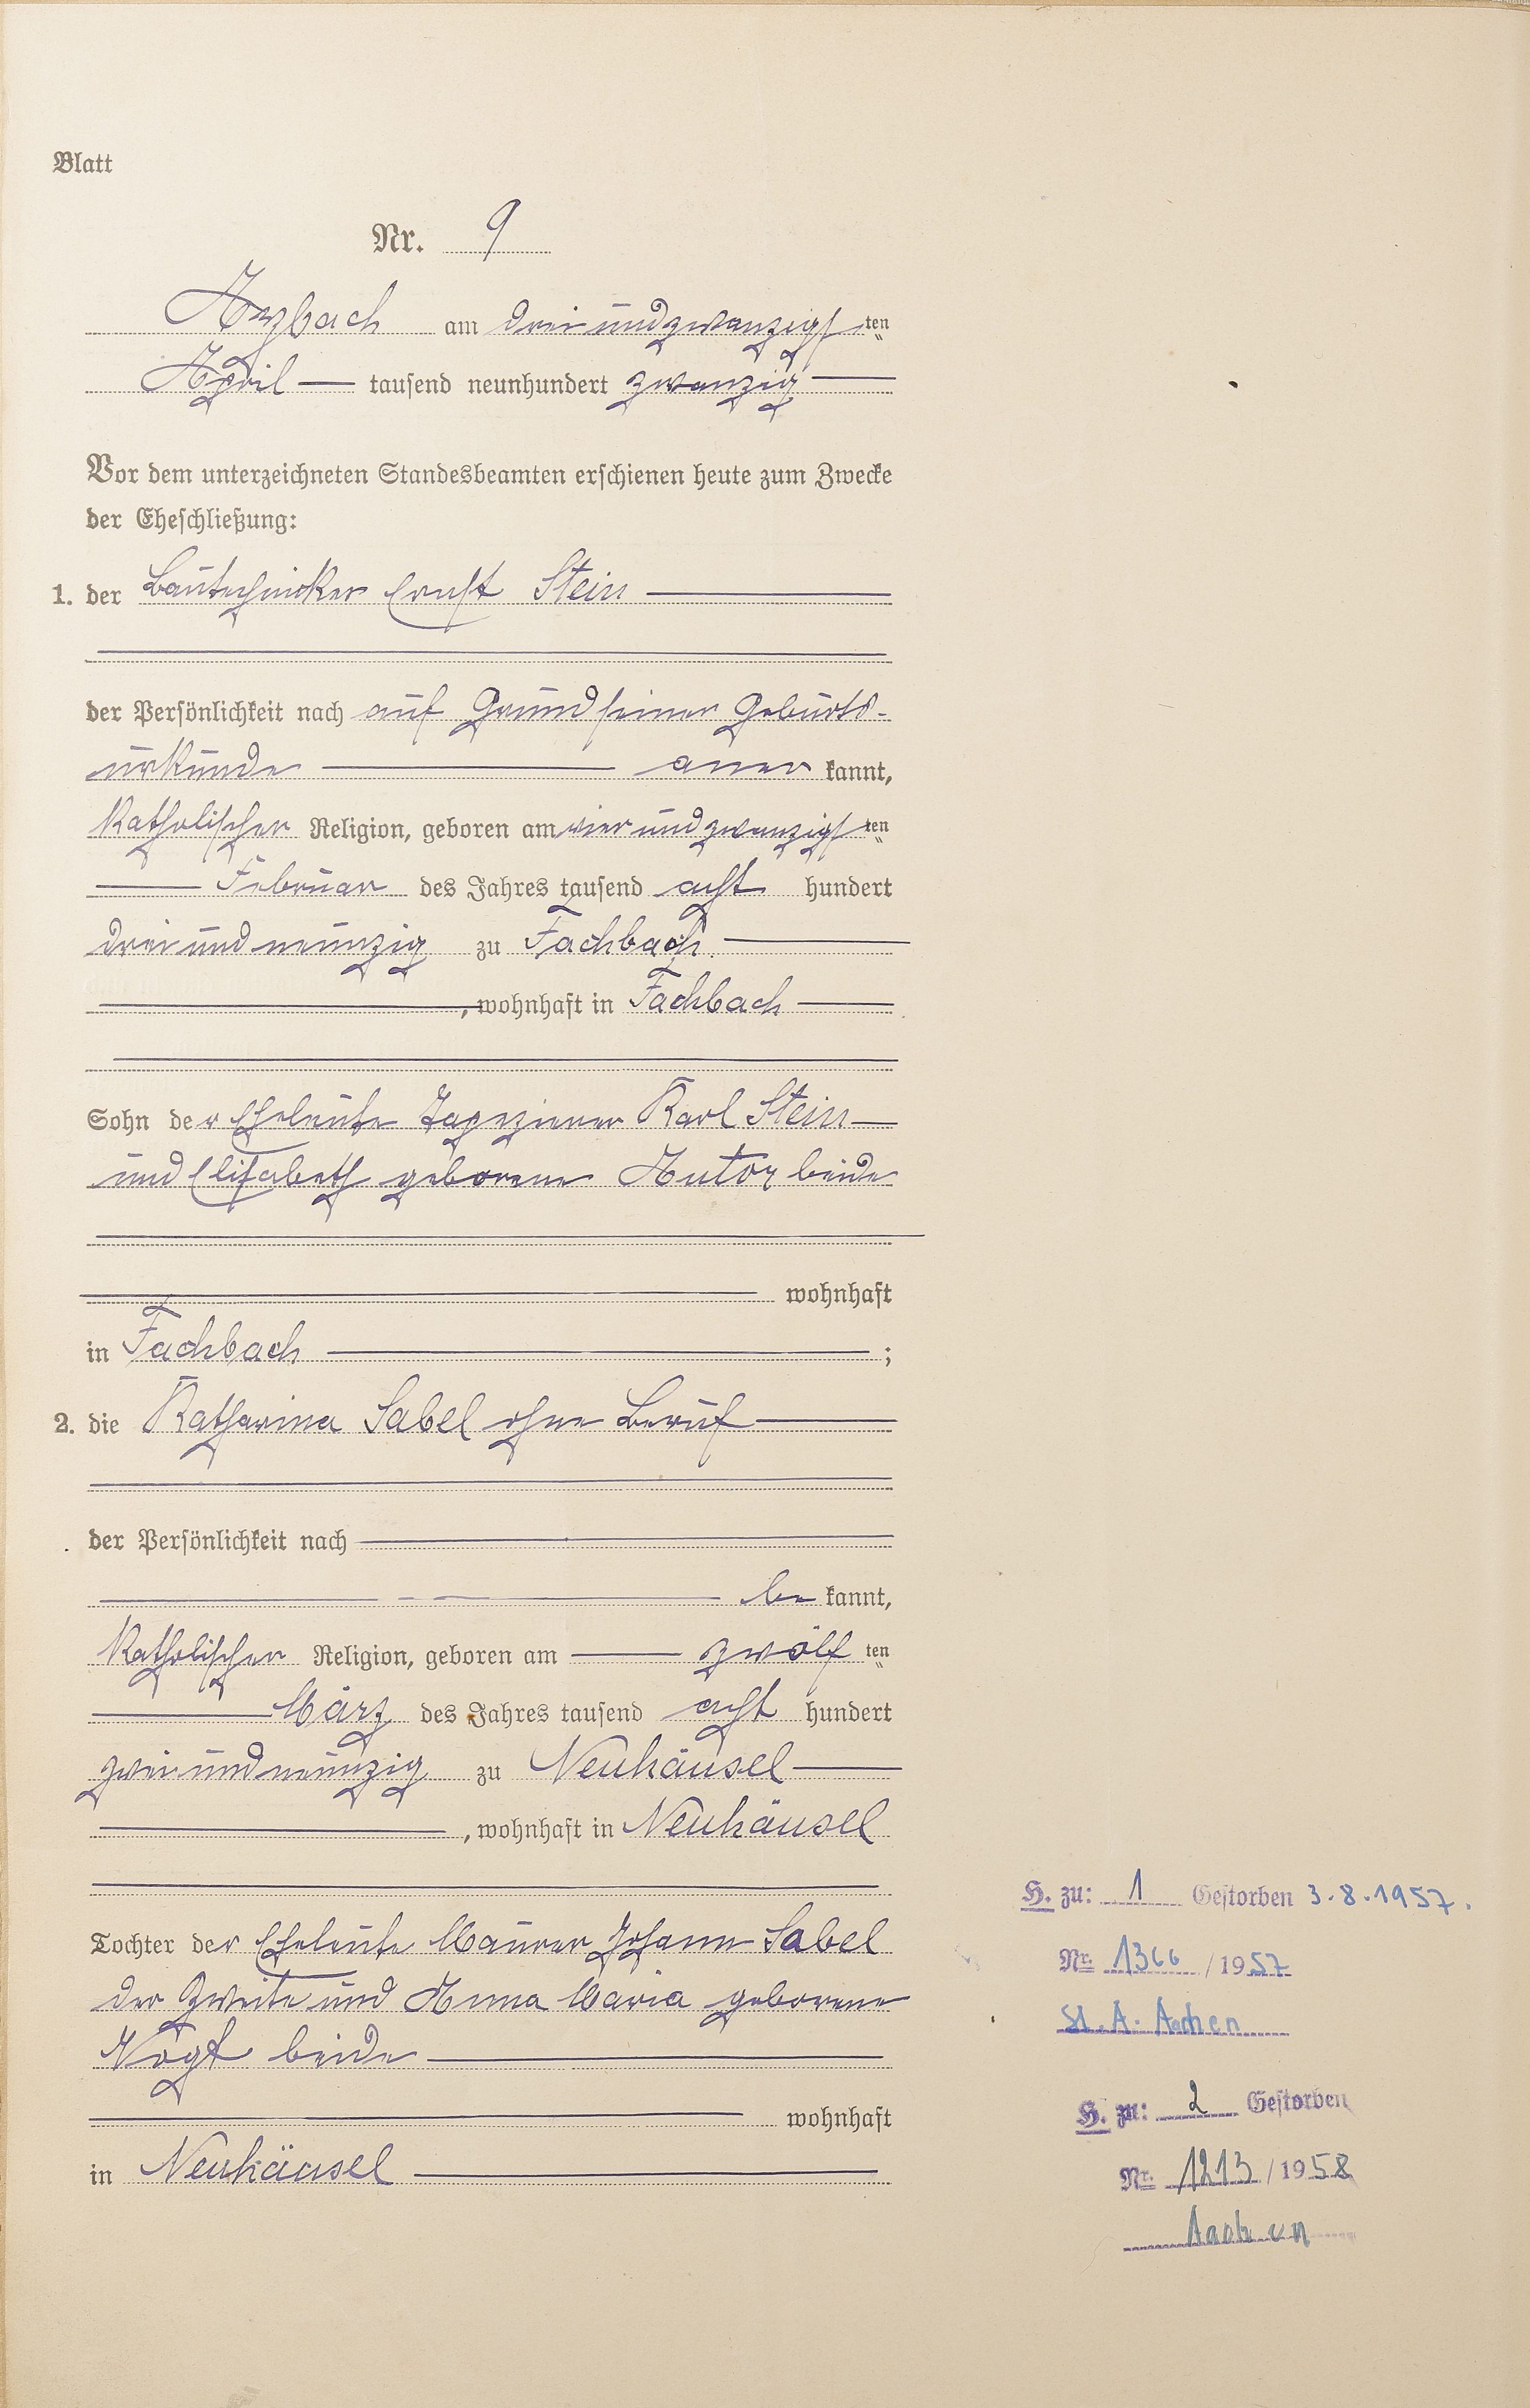 Blatt
Nr. 9
Arzbach am drei und zwanzigsten
April tausend neunhundert zwanzig
Vor dem unterzeichneten Standesbeamten erschienen heute zum Zwecke
der Eheschließung:
1. der Bautechniker Ernst Stein
der Persönlichkeit nach auf Grund seiner Geburts-
urkunde aner kannt,
katholischer Religion, geboren am vier und zwanzigsten
Februar des Jahres tausend acht hundert
drei und neunzig zu Fachbach
, wohnhaft in Fachbach
Sohn der Eheleute Tapezierer Karl Stein
und Elisabeth geborene beide
wohnhaft
in Fachbach ;
2. die Katharina Sabel ohne Beruf
der Persönlichkeit nach
be kannt,
katholischer Religion, geboren am zwölf ten
März des Jahres tausend acht hundert
zwei und neunzig zu Neuhäusel
, wohnhaft in Neuhäusel
Tochter der Eheleute Maurer Johann Sabel
der Zweite und Anna Maria geborene
beide
wohnhaft
in Neuhäusel
H. zu: 1 Gestorben 3.8.1957.
Nr. 1366 / 1957
St. A. Aachen
H. zu: 2 Gestorben
Nr. 1213 / 1958
Aachen